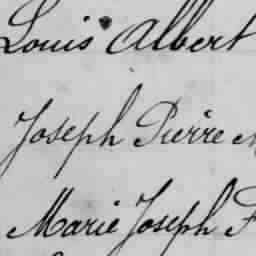 Louis Albert
Joseph Pierre
Marie Joseph F